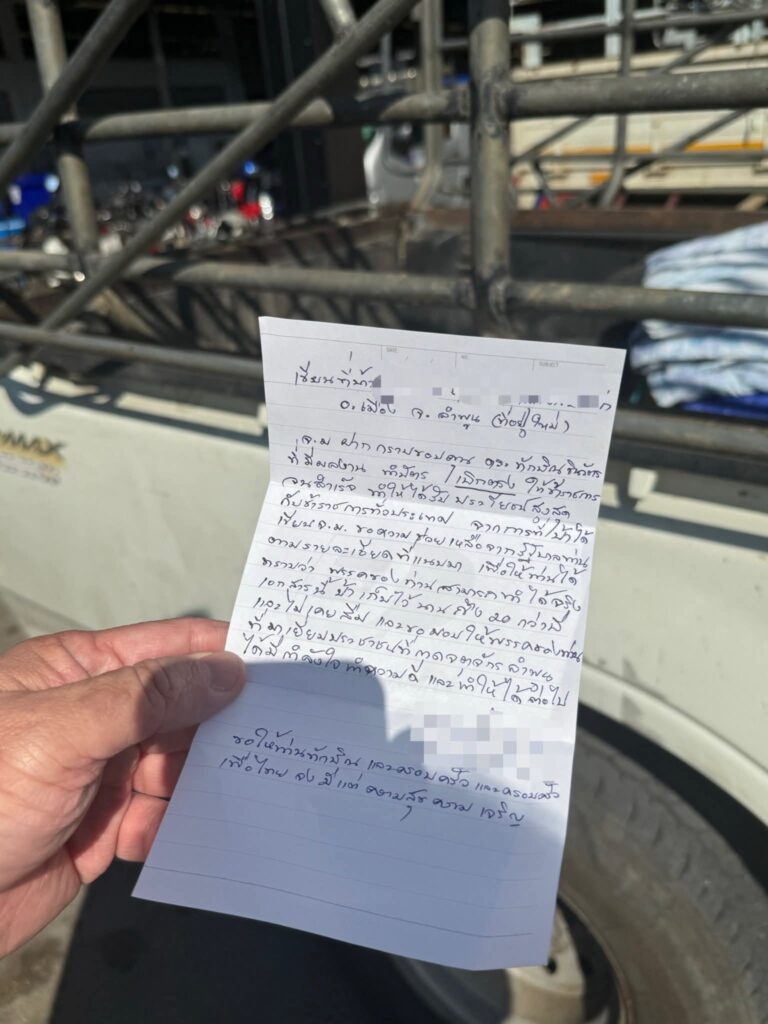 DATE NO. SUBJECT
เขียนที่บ้าน
อ.เมือง จ.ลำพูน (ที่อยู่ใหม่)
จ.ม ฝากกราบขอบคุณ ฯพณฯ ทักษิณ ชินวัตร
ที่มีผลงาน ทำบัตร เบิกตรง ให้ข้าราชการ
จนสำเร็จ ทำให้ได้รับ ประโยชน์สูงสุด
กับข้าราชการทั้งประเทศ จากการที่ป้าได้
เขียนจ.ม. ขอความช่วยเหลือจากรัฐบาลท่าน
ตามรายละเอียดที่แนบมา เพื่อให้ท่านได้
ทราบว่า พรรคของท่านสามารถทำได้จริง
เอกสารนี้ป้าเก็บไว้นานถึง 20 กว่าปี
และไม่เคยลืม และขอมอบให้พรรคของท่าน
ที่มาเยี่ยมประชาชนที่กาดจตุจักรลำพูน
ได้มีกำลังใจทำความดี และทำให้ได้ต่อไป
ขอให้ท่านทักษิณ และครอบครัว และครอบครัว
เพื่อไทย จงมีแต่ความสุขความเจริญ